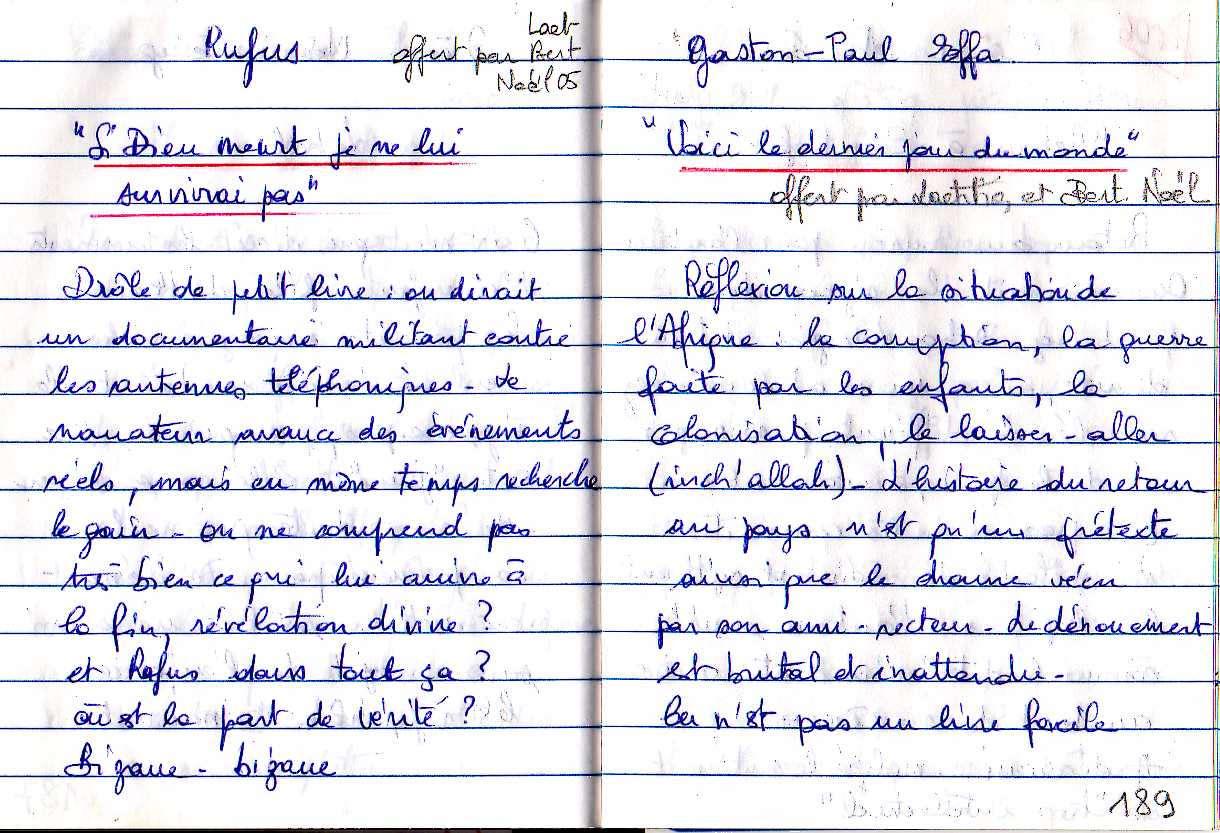 Rufus
Laet-
offert par Bert
Noël 05
"Si Dieu meurt je ne lui
survivrai pas"
Drôle de petit livre : on dirait
un documentaire militant contre
les antennes téléphoniques - Le
narrateur avance des événements
réels, mais en même temps recherche
le gain - on ne comprend pas
très bien ce qui lui arrive à
la fin, révélation divine ?
et Rufus dans tout ça ?
où est la part de vérité ?
Bizarre - bizarre
Gaston-Paul Effa
"Voici le dernier jour du monde"
offert par Laetitia, et Bert Noël
Réflexion sur la situation de
l'Afrique : la corruption, la guerre
faite par les enfants, la
colonisation, le laisser-aller
(inch'allah) - L'histoire du retour
au pays n'est qu'un prétexte
ainsi que le drame vécu
par son ami - recteur - Le dénouement
est brutal et inattendu -
Ce n'est pas un livre facile
189